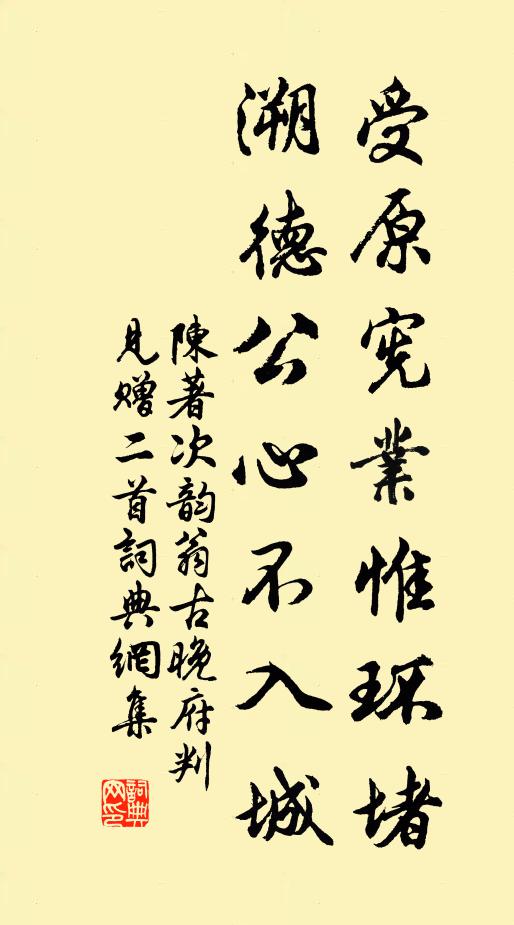 受原宪業惟环堵
溯德公心不入城
陳著次韵翁古晚府判
見赠二首詞典網集
詞典网印